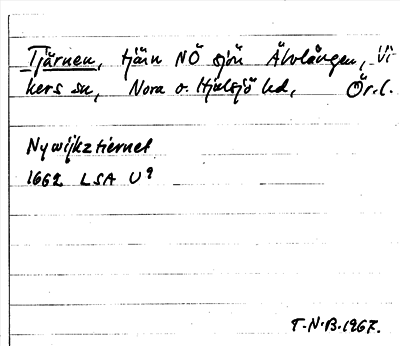 Tjärnen, tjärn NÖ sjön Älvlången, Vi
kers sn, Nora o. Hjulsjö hd, Ör. l.
Nywijkztiernet
1662 LSA U⁹
T.N.B. 1967.